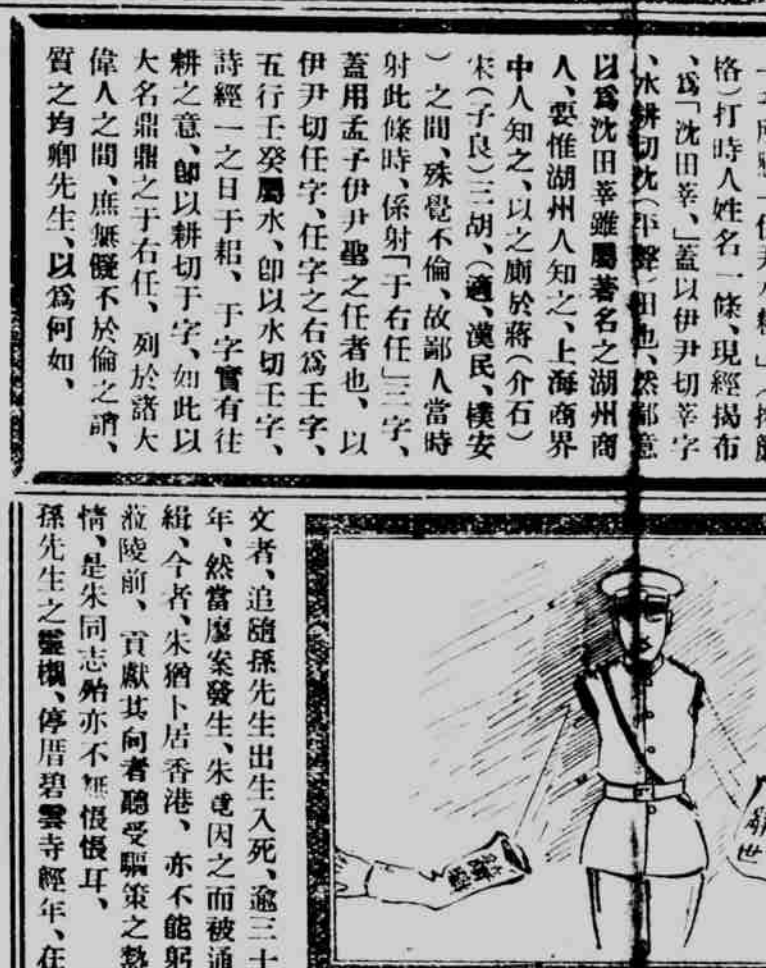 格）打時人姓名一條、現經揭布
、爲「沈田莘、」蓋以伊尹切莘字
、水耕切沈（平聲）田也、然鄙意
以爲沈田莘雖屬著名之湖州商
人、要惟湖州人知之、上海商界
中人知之、以之廁於蔣（介石）
宋（子良）三胡、（適、漢民、樸安
）之間、殊覺不倫、故鄙人當時
射此條時、係射「于右任」三字、
蓋用孟子伊尹聖之任者也、以
伊尹切任字、任字之右爲壬字、
五行壬癸屬水、卽以水切壬字、
詩經一之日于耜、于字實有往
耕之意、卽以耕切于字、如此以
大名鼎鼎之于右任、列於諸大
偉人之間、庶無儗不於倫之誚、
質之均卿先生、以爲何如、
文者、追隨孫先生出生入死、逾三十
年、然當廖案發生、朱竟因之而被通
緝、今者、朱猶卜居香港、亦不能躬
蒞陵前、貢獻其向者聽受驅策之熱
情、是朱同志殆亦不無悵悵耳、
孫先生之靈櫬、停厝碧雲寺經年、在